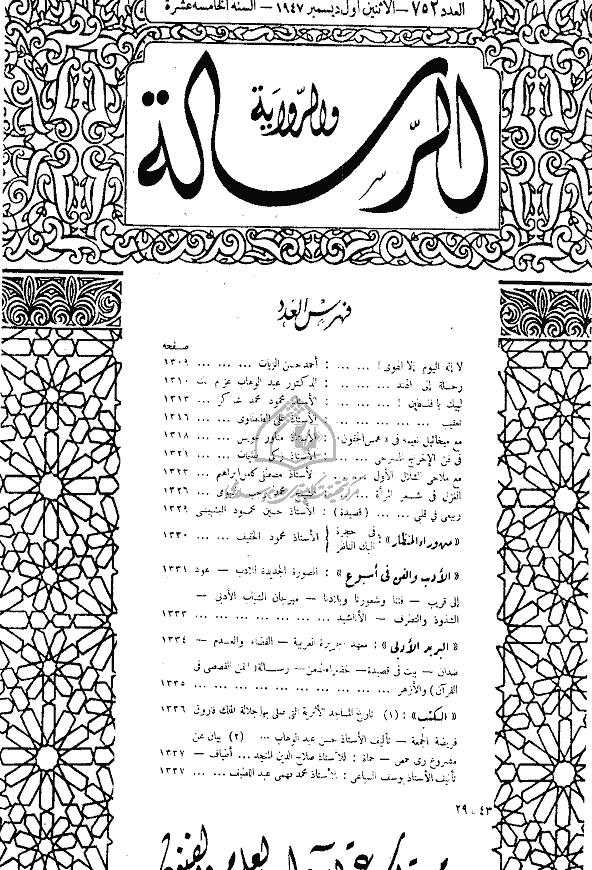 العدد ٧٥٢ – الاثنين أول ديسمبر ١٩٤٧ – السنة الخامسة عشرة
الرسالة
والرواية
فهرس العدد
صفحة
لا إله اليوم إلا الهوى ! ... ... : أحمد حسن الزيات ... ... ١٣٠٩
رحلة إلى الهند ... ... ... : الدكتور عبد الوهاب عزام بك ... ١٣١٠
لبيك يا فلسطين ! ... ... ... : الأستاذ محمود محمد شاكر ... ١٣١٣
تعقيب ... ... ... ... : الأستاذ علي الطنطاوي ... ١٣١٦
مع ميخائيل نعيمه في « همس الجفون » : الأستاذ ... ١٣١٨
في فن الإخراج المسرحي ... : الأستاذ زكي طليمات ... ١٣٢١
مع ملاحي الشلال الأول ... : الأستاذ مصطفى كامل إبراهيم ... ١٣٢٣
الغزل في شعر المرأة ... ... : السيد محمد ... ١٣٢٦
ربيعي في قلبي ... ... ( قصيدة ) : الأستاذ حسين محمود البشبيشي ١٣٢٩
« من وراء المنظار » : في حجرة : الأستاذ محمود الخفيف ... ... ١٣٣٠
« الأدب والفن في أسبوع » : الصورة الجديدة للأدب – عود ١٣٣١
إلى قريب – فننا وشعورنا وبلادنا – مهرجان الشباب الأدبي –
الشذوذ والتطرف – الأناشيد ... ... ... ... ... ١٣٣٣
« البريد الأدبي » : معهد جزيرة العربية – القضاء والعدم – ١٣٣٤
ضدان – بيت في قصيدة – خضراء الدمن – رسالة ( الفن القصصي في
القرآن ) والأزهر ... ... ... ... ... ... ... ١٣٣٥
« الكتب » : (١) تاريخ المساجد الأثرية التي صلى بها جلالة الملك فاروق ١٣٣٦
فريضة الجمعة – تأليف الأستاذ حسن عبد الوهاب ... (٢) بيان عن
مشروع ري حمص – حماة : للأستاذ صلاح الدين المنجد ... أطياف – ١٣٣٧
تأليف الأستاذ يوسف السباعي : للأستاذ محمد فهمي عبد اللطيف ... ... ١٣٣٧
٤٣ - ٢٩